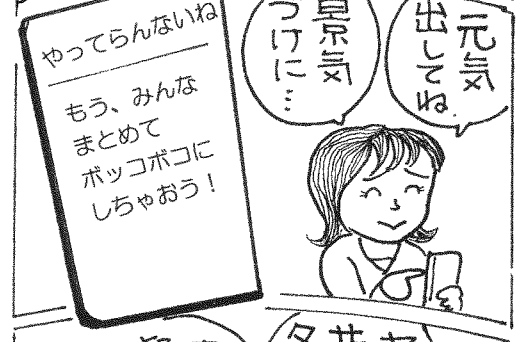 元気
出してね.
景気
つけに…
やってらんないね
もう、みんな
まとめて
ボッコボコに
しちゃおう！